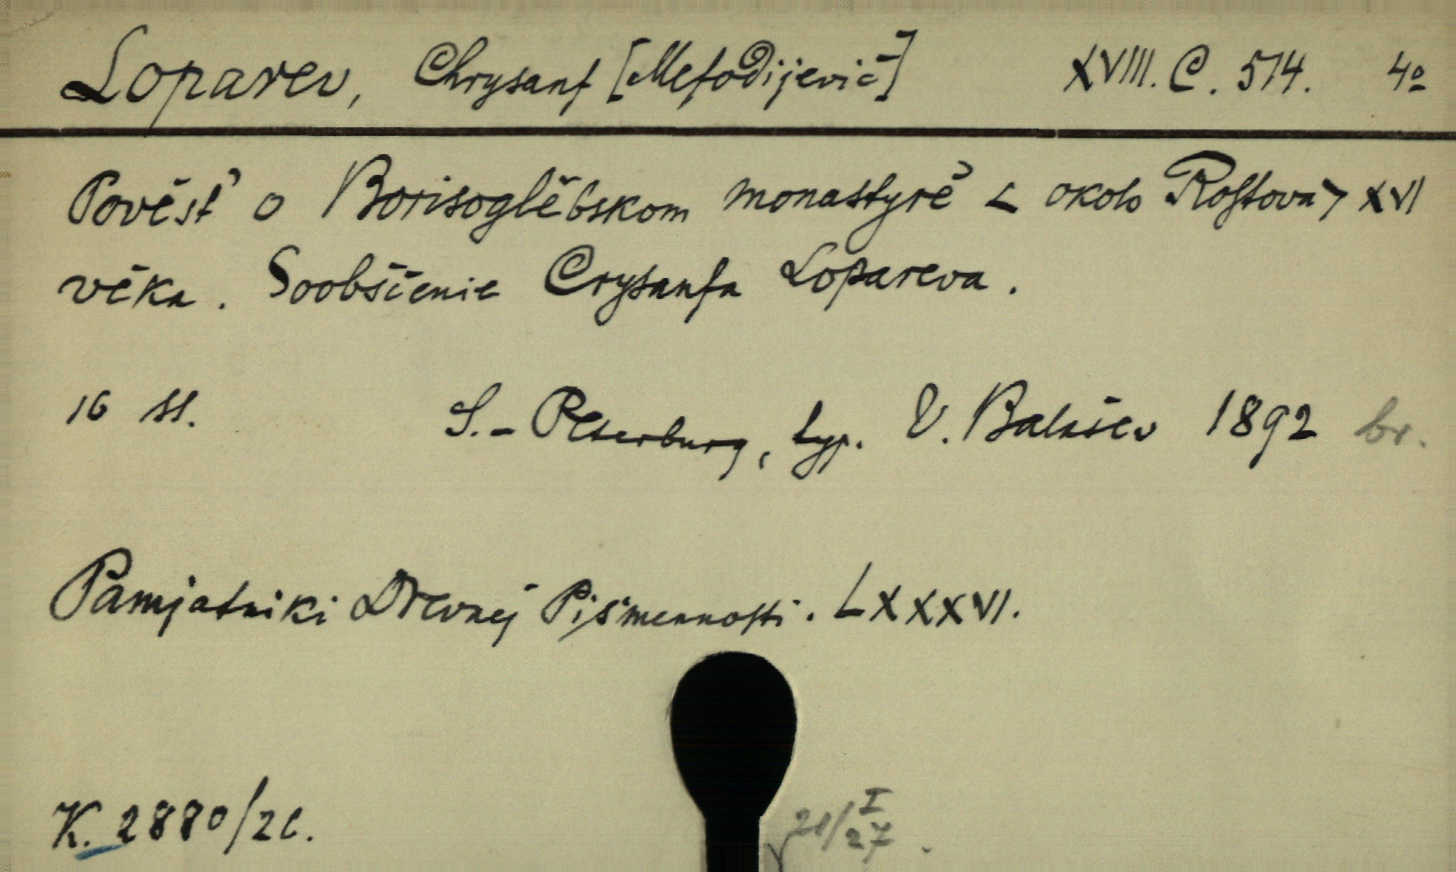 Loparev, Chrysanf [Mefodijevič] XVIII. C. 514. 4º
Pověsť o Borisoglěbskom monastyrě < okolo Rostova > XVI
věka. Soobščenie Crysanfa Lopareva.
16 ss. S.-Peterburg, typ. V. Balašev 1892 br.
Pamjatniki Drevnej Piśmennosti. LXXXVI.
K. 2880/